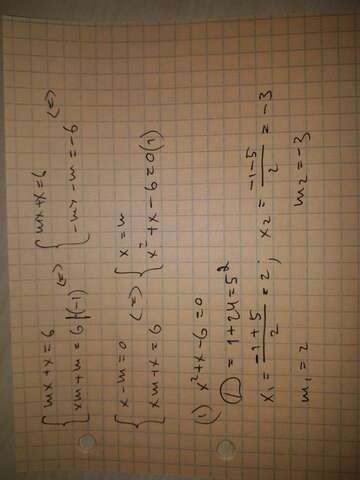 { mx + x = 6
{ xm + m = 6 |·(-1) (=) { mx + x = 6
{ -mx - m = -6 (=)
{ x - m = 0
{ xm + x = 6 (=) { x = m
{ x² + x - 6 = 0 (1)
(1) x² + x - 6 = 0
D = 1 + 24 = 5²
x₁ = (-1+5)/2 = 2; x₂ = (-1-5)/2 = -3
m₁ = 2 m₂ = -3